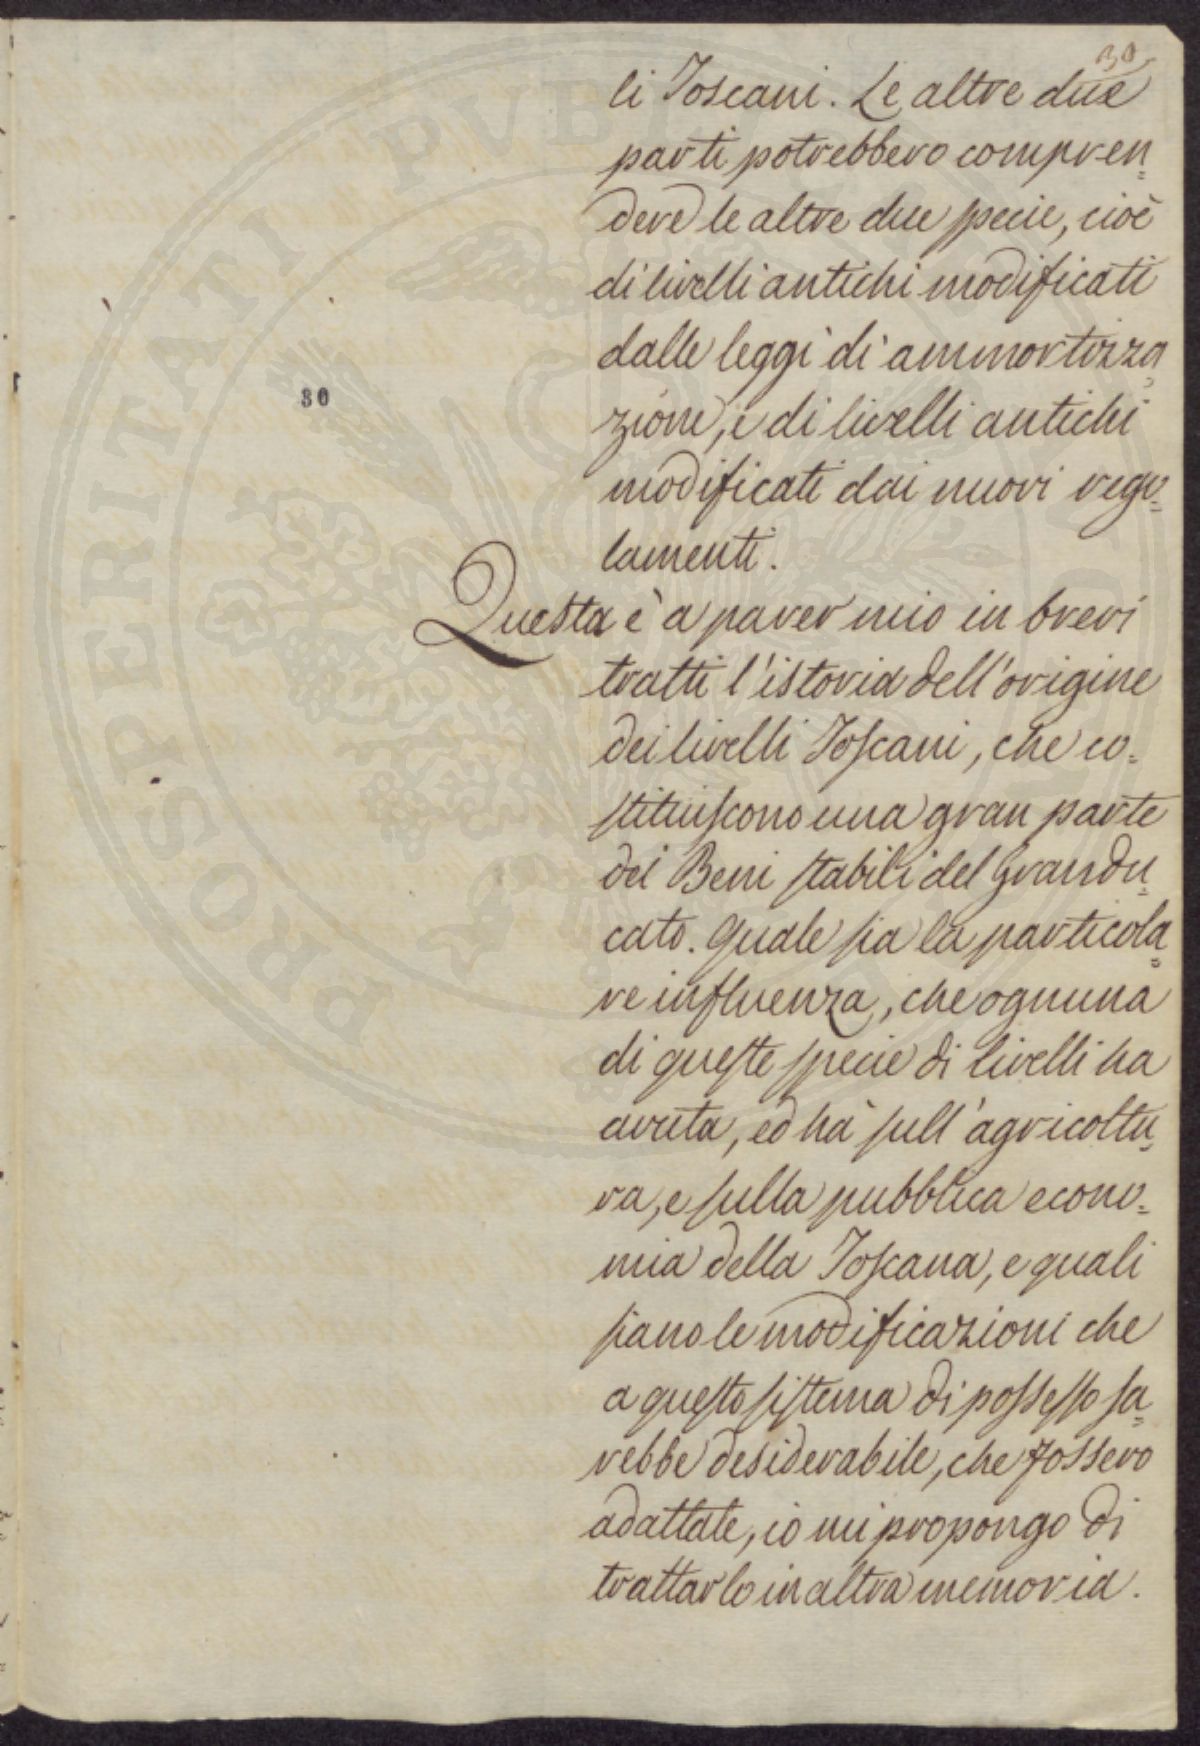 30
li Toscani. Le altre due
parti potrebbero compren=
dere le altre due specie, cioè
di livelli antichi modificati
dalle leggi di ammortizza=
zione, e di livelli antichi
modificati dai nuovi rego=
lamenti.
30
Questa è a parer mio in brevi
tratti l'istoria dell'origine
dei livelli Toscani, che co=
stituiscono una gran parte
dei Beni stabili del Grandu=
cato. Quale sia la particola=
re influenza, che ognuna
di queste specie di livelli ha
avuta, ed hà sull'agricoltu=
ra, e sulla pubblica econo=
mia della Toscana, e quali
siano le modificazioni che
a questo sistema di possesso sa=
rebbe desiderabile, che fossero
adattate, io mi propongo di
trattarlo in altra memoria.
PROSPERITATI PUBL